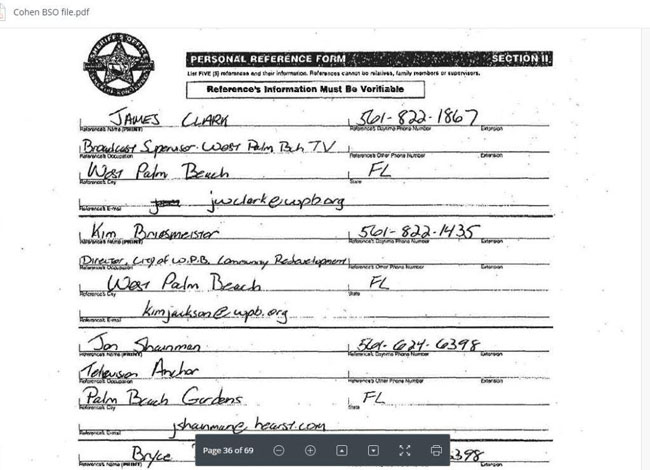 Cohen BSO file.pdf
PERSONAL REFERENCE FORM SECTION II
List FIVE (5) references and their information. References cannot be relatives, family members or supervisors.
Reference's Information Must Be Verifiable
JAMES CLARK 561-822-1867
Reference's Name (PRINT) Reference's Daytime Phone Number Extension
Broadcast Supervisor. West Palm Bch TV
Reference's Occupation Reference's Other Phone Number Extension
West Palm Beach FL
Reference's City State
jwclark@wpb.org
Reference's E-mail
Kim Briesmeister 561-822-1435
Reference's Name (PRINT) Reference's Daytime Phone Number Extension
Director, City of W.P.B. Community Redevelopment
Reference's Occupation Reference's Other Phone Number Extension
West Palm Beach FL
Reference's City State
kimjackson@wpb.org
Reference's E-mail
Jon Shainman 561-624-6398
Reference's Name (PRINT) Reference's Daytime Phone Number Extension
Television Anchor
Reference's Occupation Reference's Other Phone Number Extension
Palm Beach Gardens FL
Reference's City State
jshainman@hearst.com
Reference's E-mail
Bryce 398
Reference's Name (PRINT) Extension
Page 36 of 69